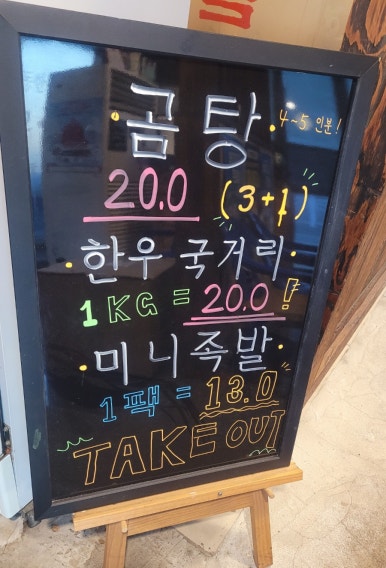 곰탕 4~5 인분!
20.0 (3+1)
한우 국거리
1KG = 20.0 !
미니족발
1팩 = 13.0
TAKE OUT